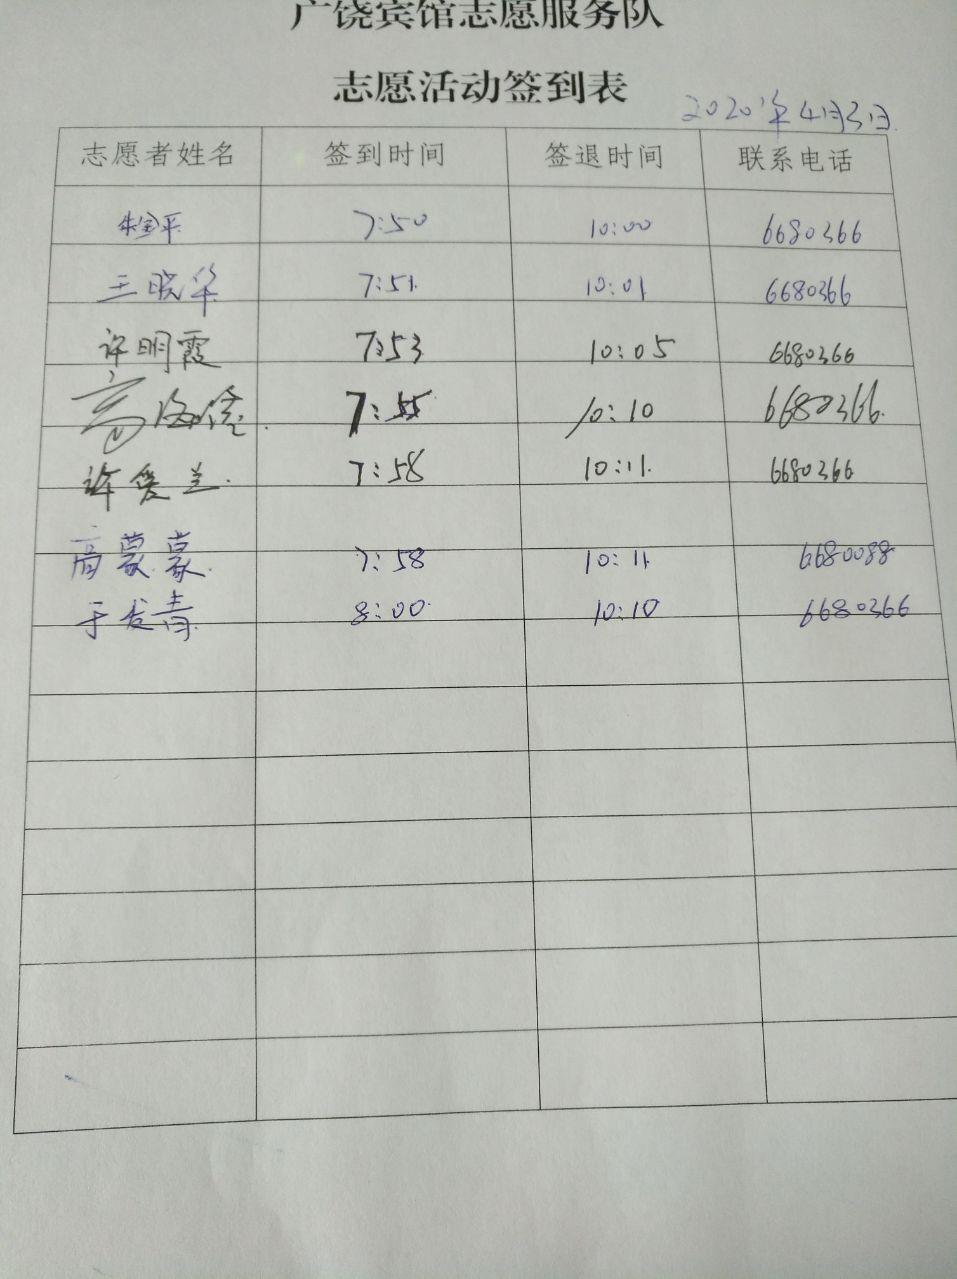 广饶宾馆志愿服务队
志愿活动签到表
2020年4月3日
志愿者姓名 签到时间 签退时间 联系电话
朱宝平 7:50 10:00 6680366
王晓华 7:51 10:01 6680366
许明霞 7:53 10:05 6680366
高海 7:55 10:10 6680366
许爱兰 7:58 10:11 6680366
高蒙蒙 7:58 10:11 6680088
于 青 8:00 10:10 6680366